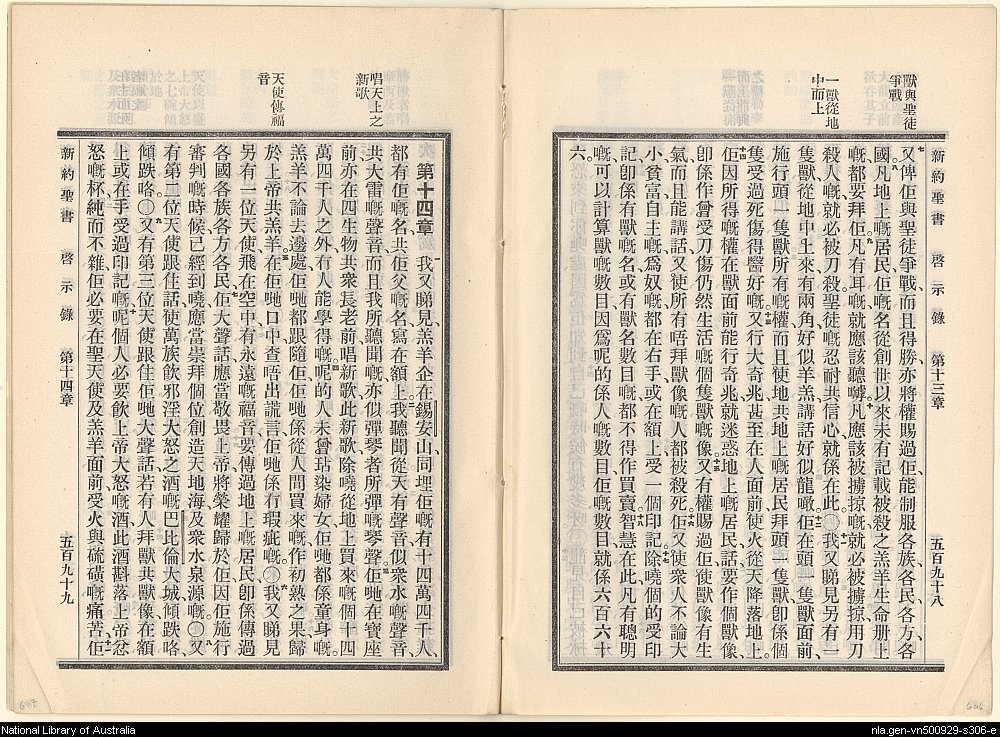 獸與聖徒
爭戰
一獸從地
中而上
新約聖書 啓示錄 第十三章 五百九十八
七又俾佢與聖徒爭戰、而且得勝、亦將權賜過佢、能制服各族各民各方各
國。八凡地上嘅居民、佢嘅名從創世以來未有記載被殺之羔羊生命册上
嘅、都要拜佢。九凡有耳嘅、就應該聽嚹。十凡應該被擄掠嘅、就必被擄掠、用刀
殺人嘅、就必被刀殺、聖徒嘅忍耐共信心就係在此。○十一我又睇見另有一
隻獸從地中上來、有兩角好似羊羔、講話好似龍噉。十二佢在頭一隻獸面前、
施行頭一隻獸所有嘅權、而且使地共地上嘅居民拜頭一隻獸、卽係個
隻受過死傷得醫好嘅。十三又行大奇兆、甚至在人面前使火從天降落地上。
十四佢因所得嘅權、在獸面前能行奇兆、就迷惑地上嘅居民、話要作個獸像、
卽係作曾受刀傷仍然生活嘅個隻獸嘅像。十五又有權賜過佢、使獸像有生
氣、而且能講話、又使所有唔拜獸像嘅人都被殺死。十六佢又使衆人、不論大
小貧富自主嘅爲奴嘅、都在右手或在額上受一個印記。十七除曉個的受印
記、卽係有獸嘅名、或有獸名數目嘅、都不得作買賣。十八智慧在此、凡有聰明
嘅、可以計算獸嘅數目、因爲呢的係人嘅數目、佢嘅數目就係六百六十
六。
唱天上之
新歌
天使傳福
音
第十四章 一我又睇見羔羊企在錫安山、同埋佢嘅有十四萬四千人、
都有佢嘅名共佢父嘅名寫在額上。二我聽聞從天有聲音、似衆水嘅聲音、
共大雷嘅聲音、而且我所聽聞嘅、亦似彈琴者所彈嘅琴聲。三佢哋在寶座
前、亦在四生物共衆長老前、唱新歌、此新歌除曉從地上買來嘅個十四
萬四千人之外、冇人能學得嘅。四呢的人未曾玷染婦女、佢哋都係童身嘅。
羔羊不論去邊處、佢哋都跟隨佢、佢哋係從人間買來嘅、作初熟之果歸
於上帝共羔羊。五在佢哋口中查唔出謊言、佢哋係冇瑕疵嘅。○六我又睇見
另有一位天使飛在空中、有永遠嘅福音、要傳過地上嘅居民、卽係傳過
各國各族各方各民。七佢大聲話、應當敬畏上帝、將榮耀歸於佢、因佢施行
審判嘅時候已經到曉、應當崇拜個位創造天地海及衆水泉源嘅。○八又
有第二位天使跟住話、使萬族飲邪淫大怒之酒嘅巴比倫大城傾跌咯、
傾跌咯。○九又有第三位天使跟住佢哋大聲話、若有人拜獸共獸像、在額
上或在手受過印記嘅、十呢個人必要飲上帝大怒嘅酒、此酒斟落上帝忿
怒嘅杯、純而不雜、佢必要在聖天使及羔羊面前、受火與硫磺嘅痛苦。十一佢
新約聖書 啓示錄 第十四章 五百九十九
National Library of Australia
nla.gen-vn500929-s306-e